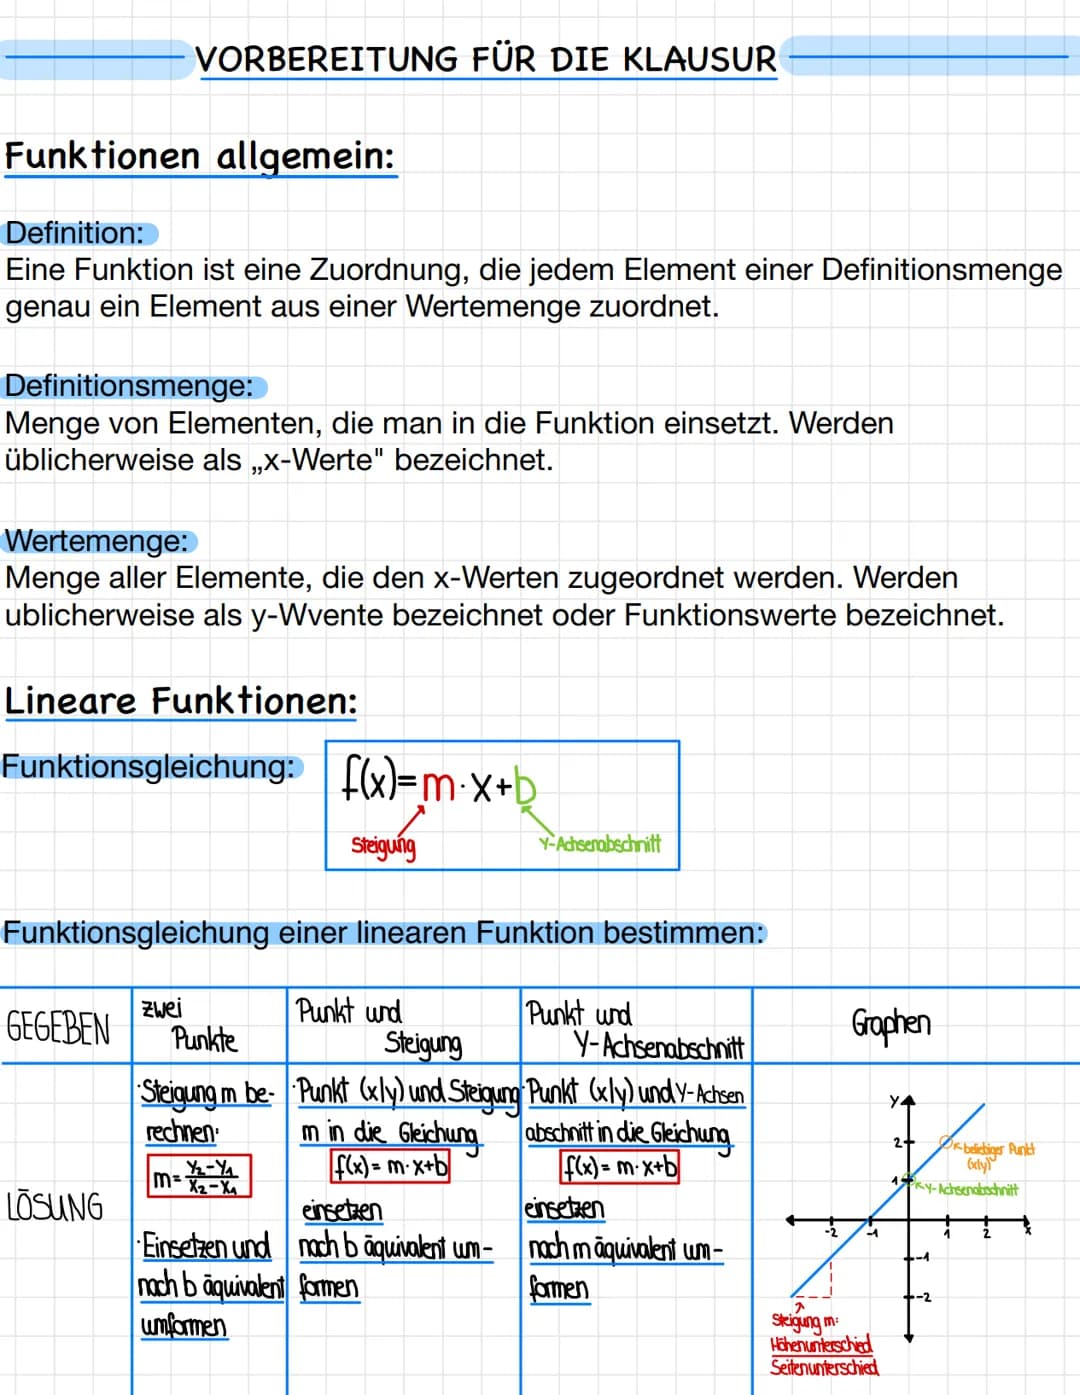 VORBEREITUNG FÜR DIE KLAUSUR
Funktionen allgemein:
Definition:
Eine Funktion ist eine Zuordnung, die jedem Element einer Definitionsmenge
genau ein Element aus einer Wertemenge zuordnet.
Definitionsmenge:
Menge von Elementen, die man in die Funktion einsetzt. Werden
üblicherweise als „x-Werte" bezeichnet.
Wertemenge:
Menge aller Elemente, die den x-Werten zugeordnet werden. Werden
ublicherweise als y-Wvente bezeichnet oder Funktionswerte bezeichnet.
Lineare Funktionen:
Funktionsgleichung:
f(x)=m·x+b
Steigung
Y-Achsenabschnitt
Funktionsgleichung einer linearen Funktion bestimmen:
GEGEBEN
zwei
Punkte
Punkt und
Steigung
Punkt und
Y-Achsenabschnitt
Graphen
LÖSUNG
·Steigung m be-
rechnen:
m = Y₂-Y₁
X₂-X₁
·Einsetzen und
nach b äquivalent
umformen
·Punkt (x|y) und Steigung
m in die Gleichung
f(x) = m·x+b
einsetzen
nach b äquivalent um-
formen
·Punkt (x|y) und Y-Achsen
abschnitt in die Gleichung
f(x) = m·x+b
einsetzen
nach m äquivalent um-
formen
Y
2
beliebiger Punkt
(x|y)
1
Y-Achsenabschnitt
-2 -1 1 2 x
-1
-2
Steigung m:
Höhenunterschied
Seitenunterschied